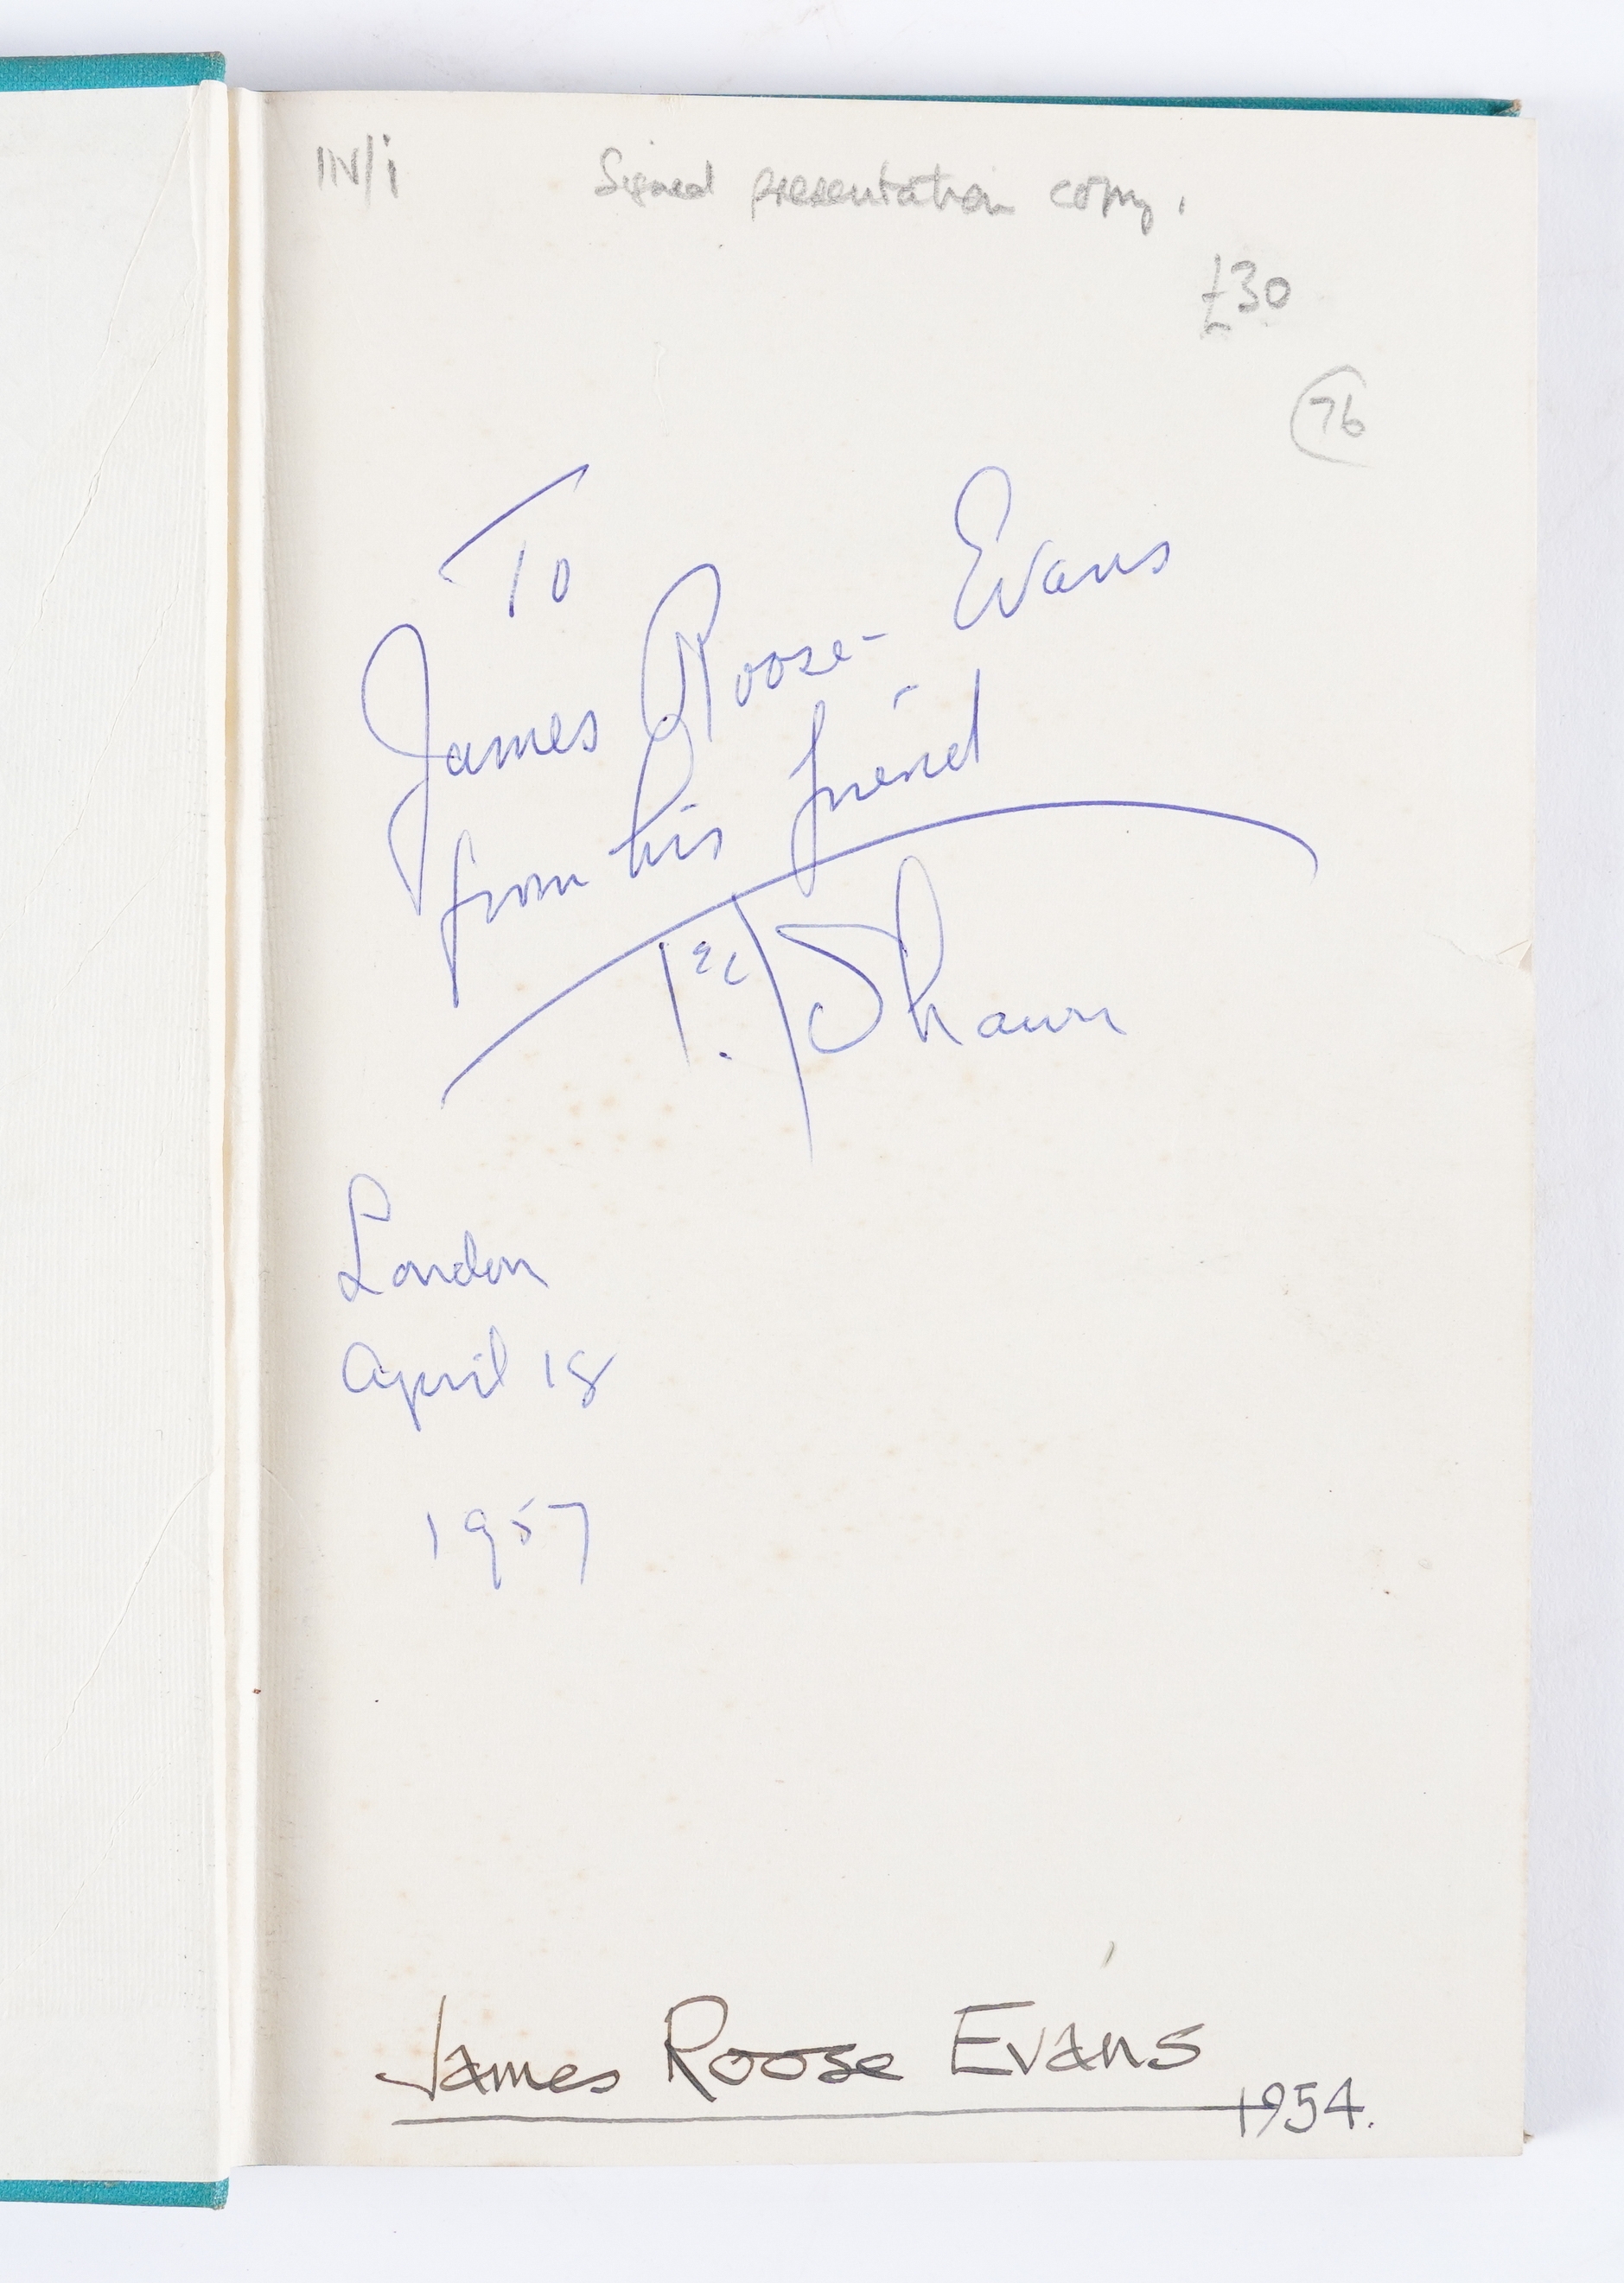 IN/i
Signed presentation copy.
£30
76
To
James Roose-Evans
from his friend
Ted Shawn
London
April 18
1957
James Roose Evans
1954.